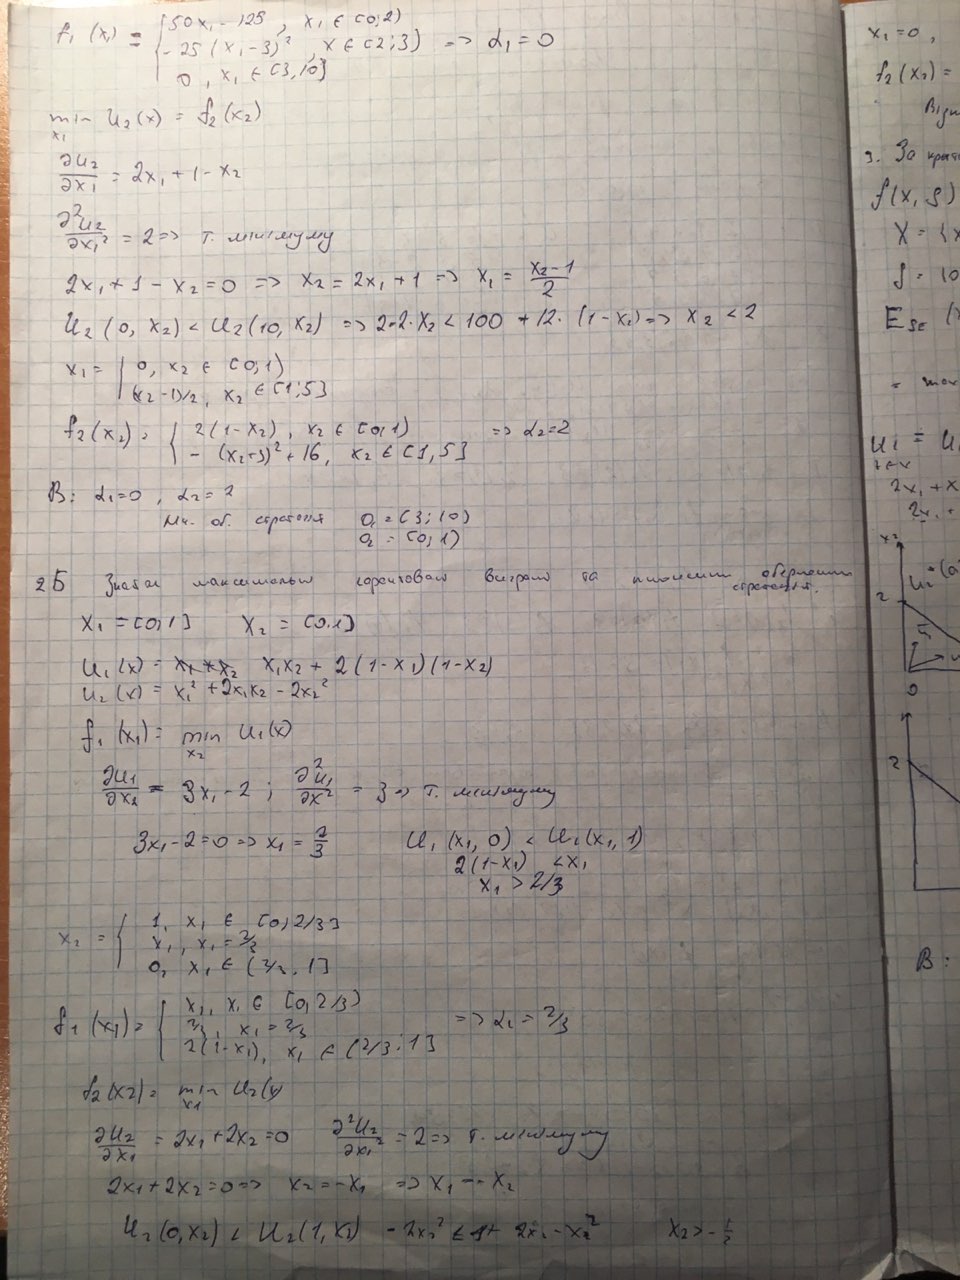 f₁(x₁) = { 50x₁ - 125, x₁ ∈ [0;2)
- 25(x₁-3)², x ∈ [2;3) => α₁ = 0
0, x₁ ∈ [3,10]
min x₁ u₂(x) = f₂(x₂)
∂u₂/∂x₁ = 2x₁ + 1 - x₂
∂²u₂/∂x₁² = 2 => т. мінімуму
2x₁ + 1 - x₂ = 0 => x₂ = 2x₁ + 1 => x₁ = (x₂-1)/2
u₂(0, x₂) < u₂(10, x₂) => 2-2·x₂ < 100 + 12·(1-x₁) => x₂ < 2
x₁ = { 0, x₂ ∈ [0,1)
(x₂-1)/2, x₂ ∈ [1;5]
f₂(x₂) = { 2(1-x₂), x₂ ∈ [0,1) => α₂=2
- (x₂+3)² + 16, x₂ ∈ [1,5]
В: α₁=0, α₂=2
Мн. об. стратегія O₁ = [3;10)
O₂ = [0,1)
2Б Знайти максимальн гарантован виграш та множини обережних
стратегій.
X₁ = [0,1] X₂ = [0,1]
u₁(x) = x₁x₂ + 2(1-x₁)(1-x₂)
u₂(x) = x₁² + 2x₁x₂ - 2x₂²
f₁(x₁) = min x₂ u₁(x)
∂u₁/∂x₂ = 3x₁ - 2; ∂²u₁/∂x² = 3 => т. мінімуму
3x₁-2=0 => x₁ = 2/3 u₁(x₁, 0) < u₁(x₁, 1)
2(1-x₁) < x₁
x₁ > 2/3
x₂ = { 1, x₁ ∈ [0;2/3]
x₁, x₁ = 2/3
0, x₁ ∈ (2/3, 1]
f₁(x₁) = { x₁, x₁ ∈ [0,2/3)
2/3, x₁ = 2/3 => α₁ = 2/3
2(1-x₁), x₁ ∈ (2/3; 1]
f₂(x₂) = min x₁ u₂(x)
∂u₂/∂x₁ = 2x₁ + 2x₂ = 0 ∂²u₂/∂x₁² = 2 => т. мінімуму
2x₁ + 2x₂ = 0 => x₂ = -x₁ => x₁ = -x₂
u₂(0,x₂) < u₂(1,x₂) - 2x₂² < 1 + 2x₂ - x₂² x₂ > -1/2
x₁ = 0,
f₂(x₂) =
3. За
f(x, S)
X = {x
S = 10
= max
2x₁ + x
2x₁ +
x₂
2
0
2
В: